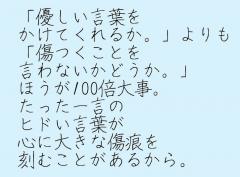 「優しい言葉を
かけてくれるか。」よりも
「傷つくことを
言わないかどうか。」
ほうが100倍大事。
たった一言の
ヒドい言葉が
心に大きな傷痕を
刻むことがあるから。